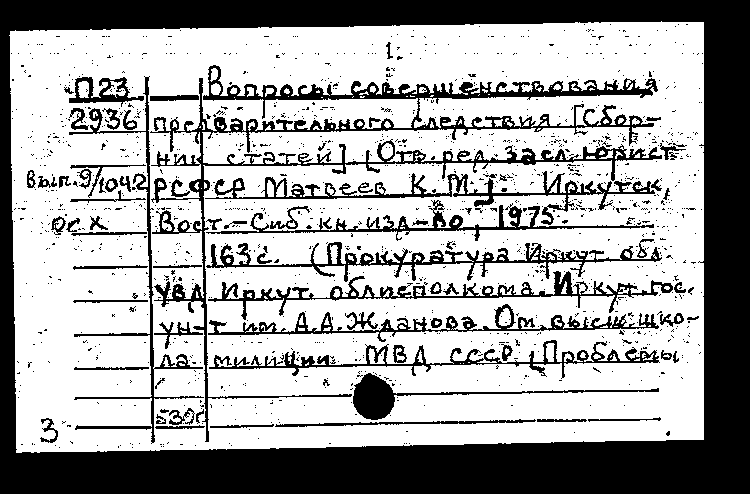 1.
П23 Вопросы совершенствования
2936 предварительного следствия. [Сбор-
ник статей]. [Отв. ред. засл. юрист
Вып. 9/1042 РСФСР Матвеев К. М.]. Иркутск,
ос х Вост.-Сиб. кн. изд-во, 1975.
163 с. (Прокуратура Иркут. обл.
УВД Иркут. облисполкома. Иркут. гос.
ун-т им. А.А.Жданова. Ом. высш. шко-
ла милиции МВД СССР. [Проблемы
530с
3